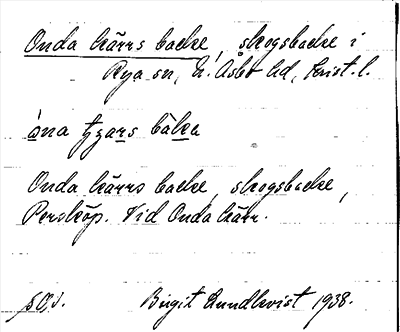 Onda kärrs backe, skogsbacke i
Rya sn, N. Åsbo hd, Krist. l.
Onda kärrs backe, skogsbacke,
Perstorp. Vid Onda kärr.
Birgit Lundkvist 1938.